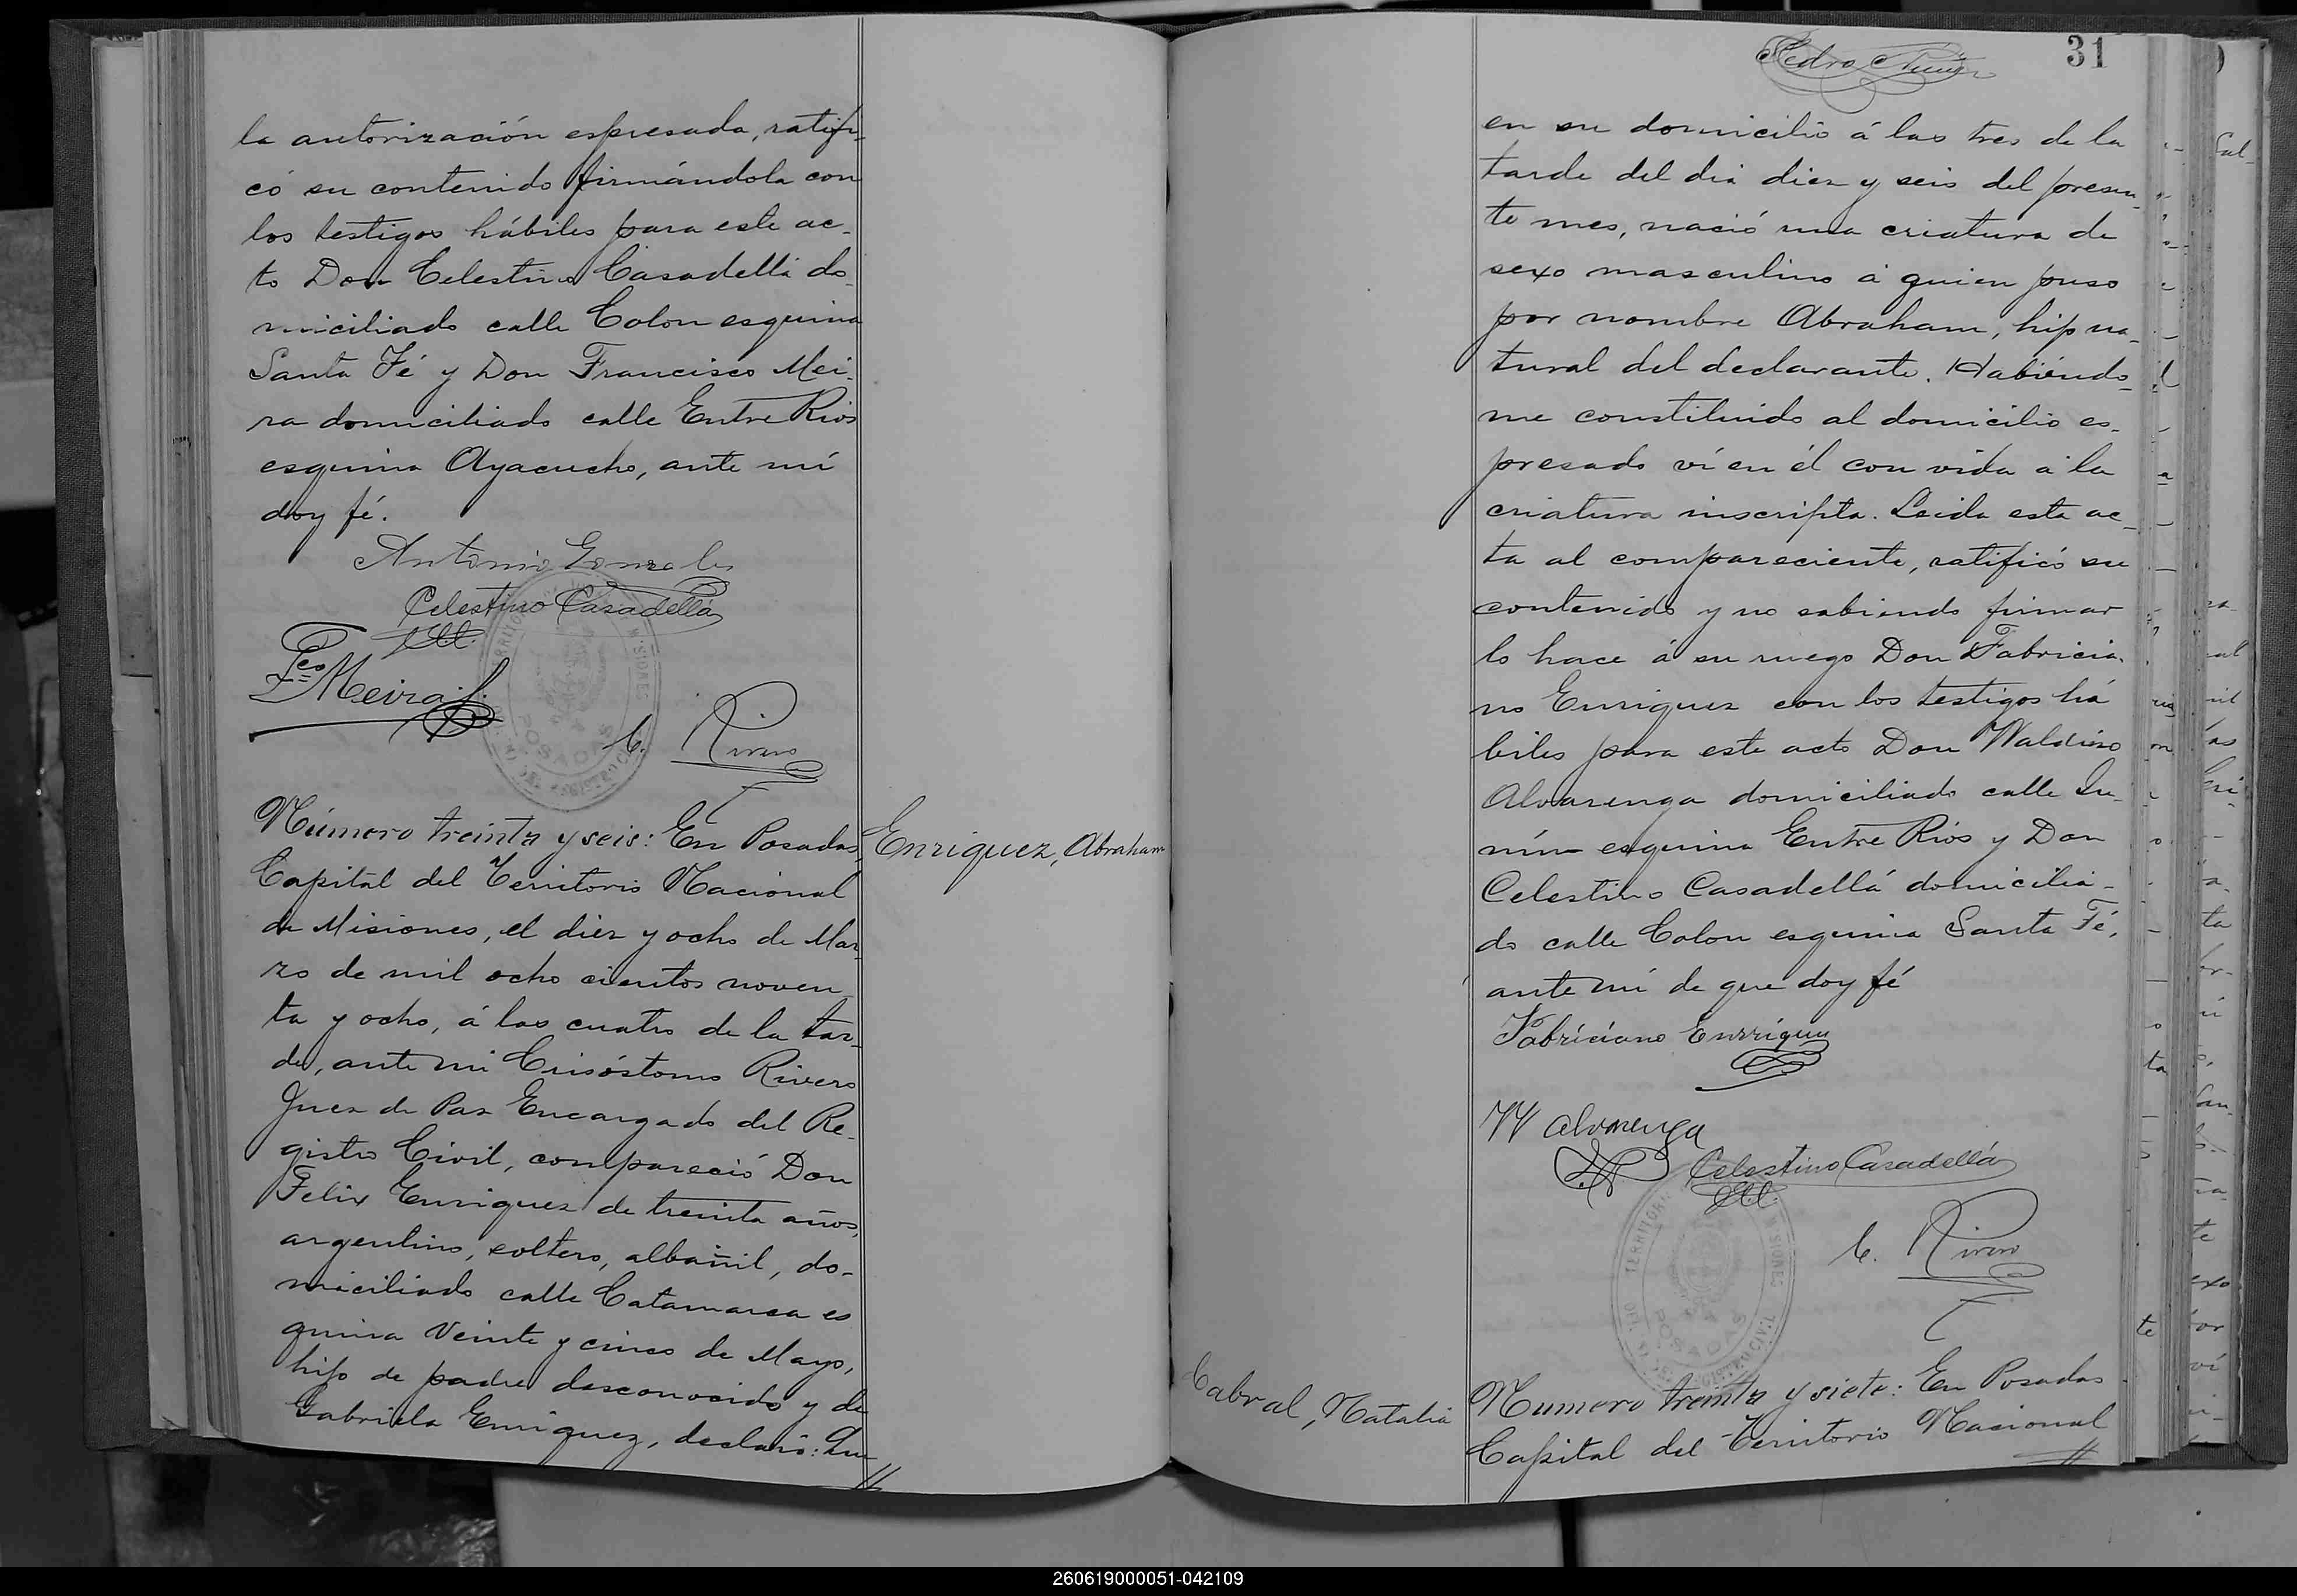 la autorización espresada, ratifi-
có su contenido firmándola con
los testigos hábiles para este ac-
to Don Celestino Casadellá do-
miciliado calle Colon esquina
Santa Fé y Don Francisco Mei-
ra domiciliado calle Entre Rios
esquina Ayacucho, ante mí
doy fé.
Antonio Gonzales
Celestino Casadellá
Fco Meira
C. Rivero
POSADAS
Número treinta y seis: En Posadas,
Enriquez, Abraham
Capital del Territorio Nacional
de Misiones, el diez y ocho de Mar-
zo de mil ocho cientos noven-
ta y ocho, á las cuatro de la tar-
de, ante mi Crisóstomo Rivero
Juez de Paz Encargado del Re-
gistro Civil, compareció Don
Felix Enriquez de treinta años,
argentino, soltero, albañil, do-
miciliado calle Catamarca es
quina Veinte y cinco de Mayo,
hijo de padre desconocido y de
Gabriela Enriquez, declaró: Que
Pedro
31
en su domicilio á las tres de la
tarde del dia diez y seis del presen-
te mes, nació una criatura de
sexo masculino á quien puso
por nombre Abraham, hijo na-
tural del declarante. Habiéndo-
me constituido al domicilio es-
presado ví en él con vida á la
criatura inscripta. Leida esta ac-
ta al compareciente, ratificó su
contenido y no sabiendo firmar
lo hace á su ruego Don Fabricia-
no Enriquez con los testigos há
biles para este acto Don Waldino
Alvarenga domiciliado calle Ju-
nín esquina Entre Rios y Don
Celestino Casadellá domicilia-
do calle Colon esquina Santa Fé,
ante mí de que doy fé
Fabriciano Enrriquez
W Alvarenga
Celestino Casadellá
C. Rivero
POSADAS
Cabral, Natalia
Numero treinta y siete: En Posadas
Capital del Territorio Nacional
260619000051-042109